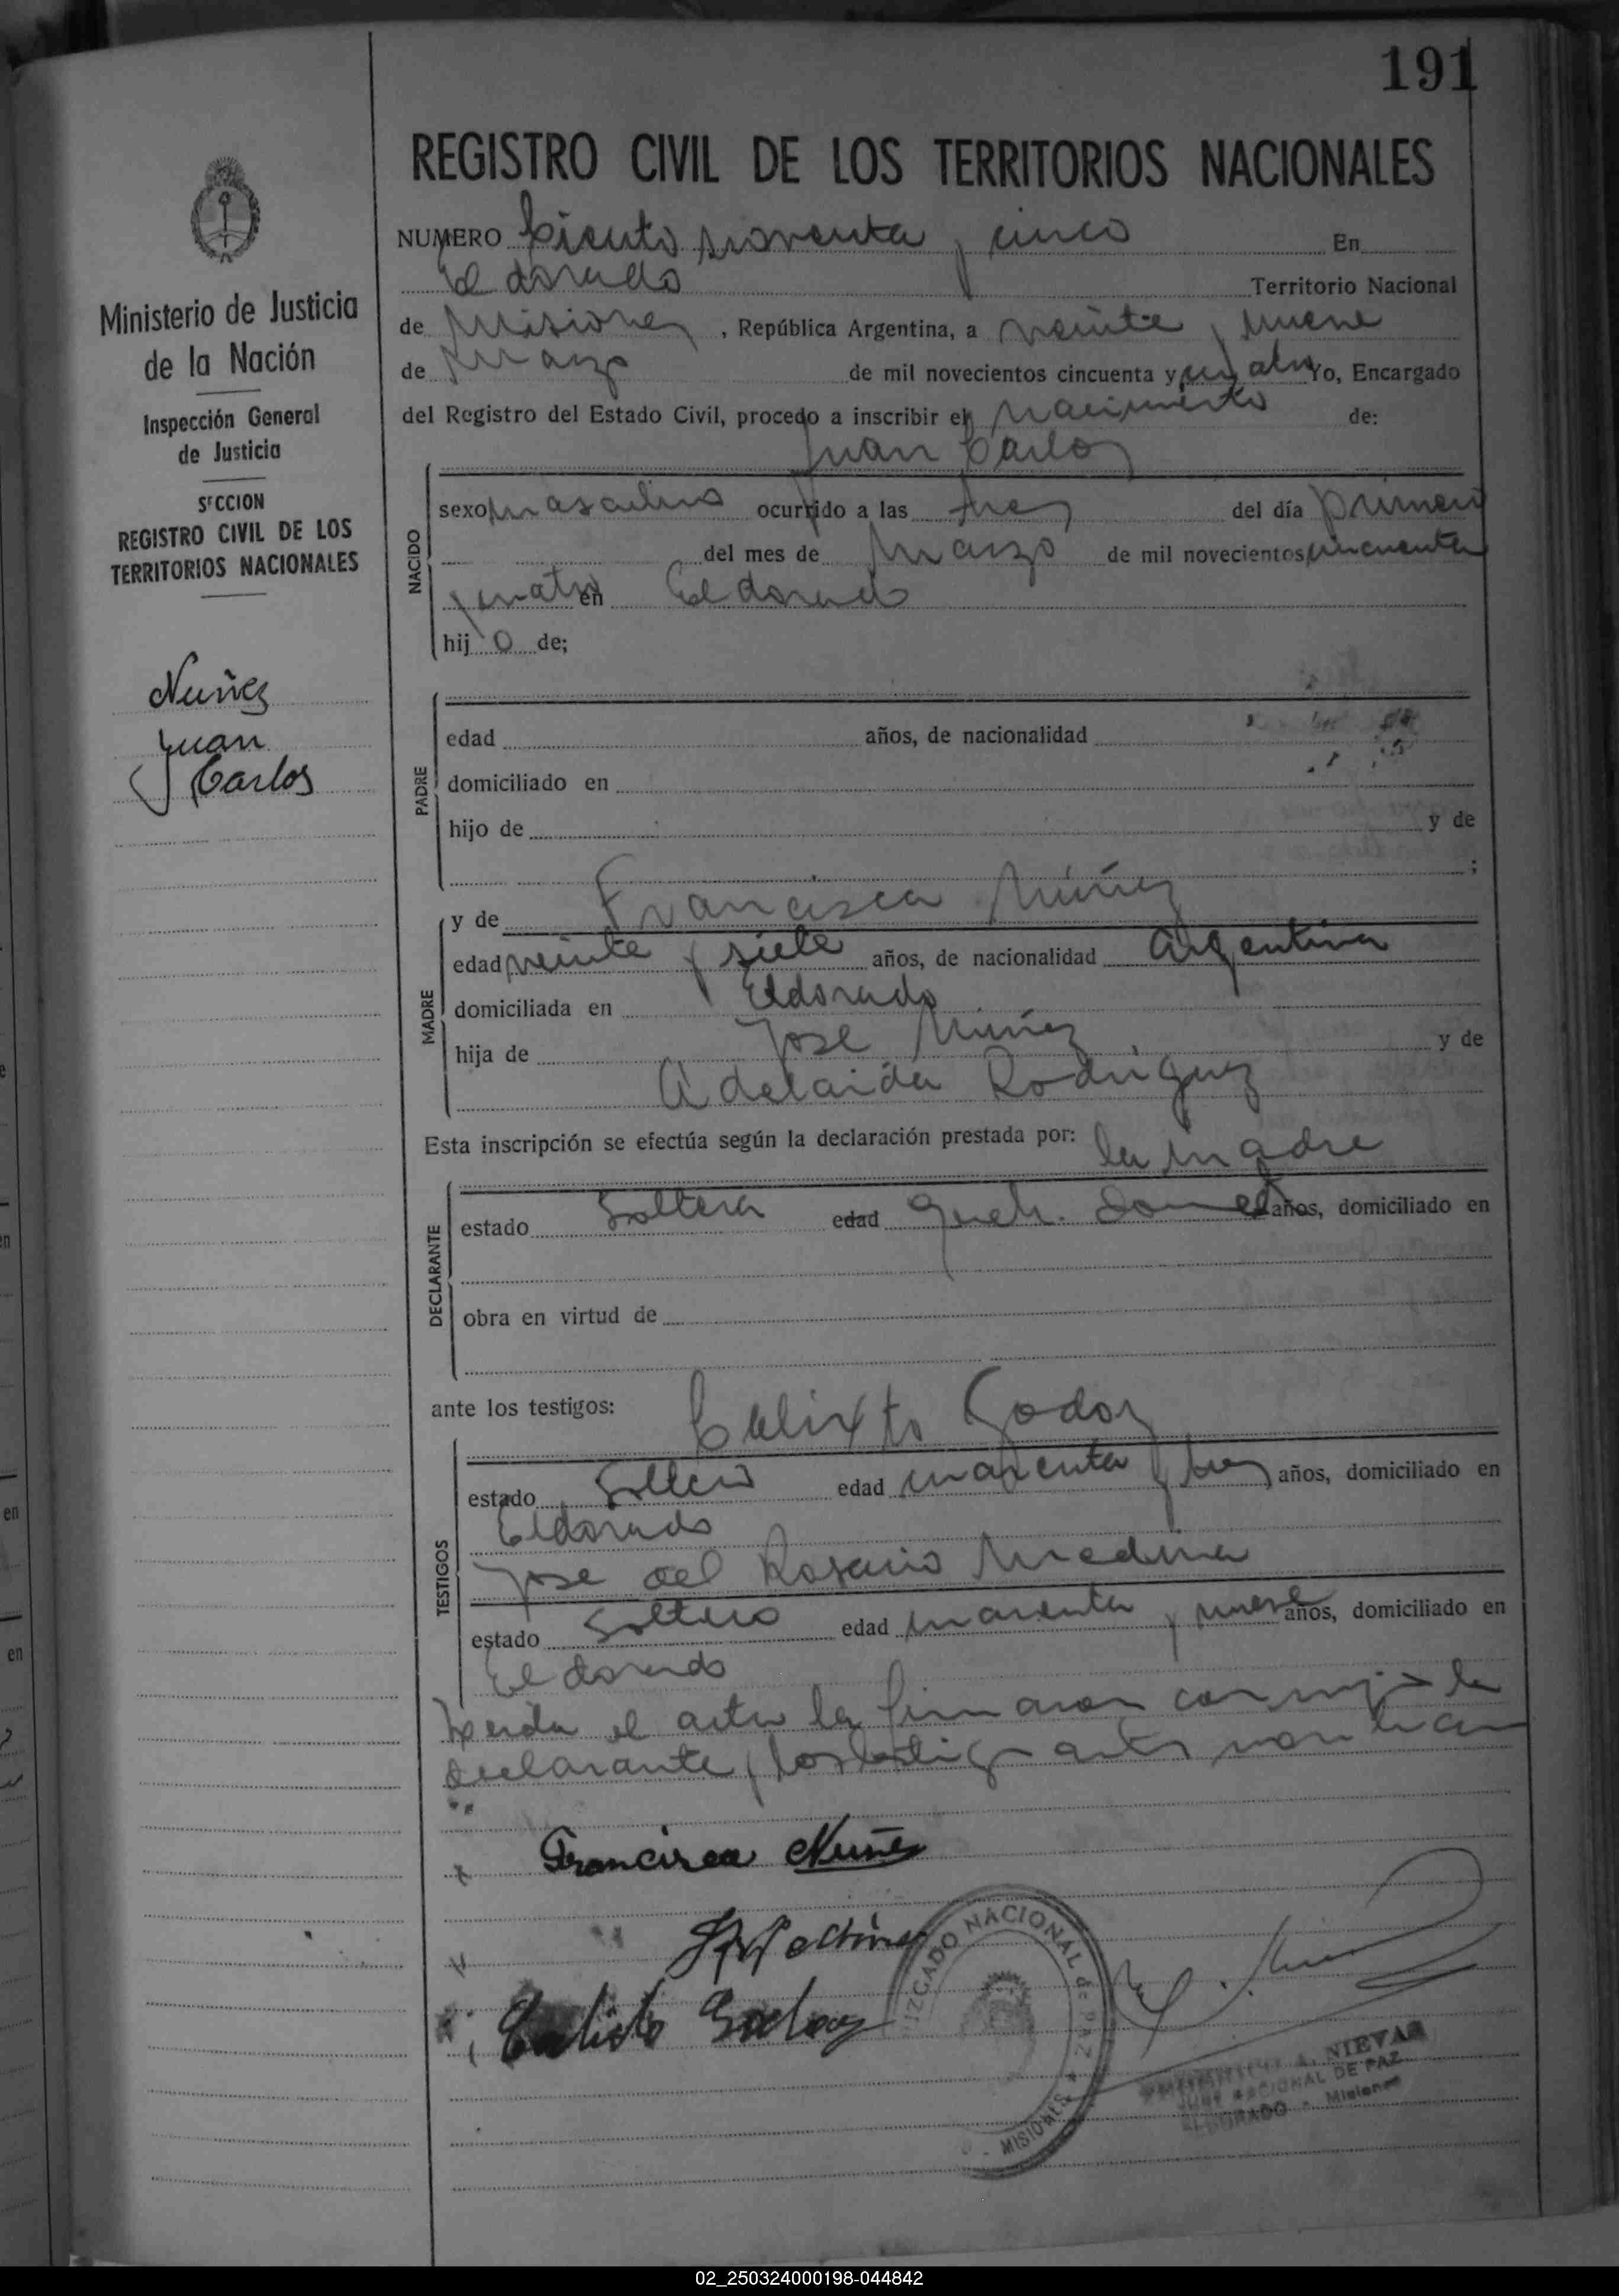 191
REGISTRO CIVIL DE LOS TERRITORIOS NACIONALES
Ministerio de Justicia
de la Nación
Inspección General
de Justicia
SECCION
REGISTRO CIVIL DE LOS
TERRITORIOS NACIONALES
Nuñez
Juan
Carlos
NUMERO Ciento noventa y cinco En
Eldorado Territorio Nacional
de Misiones, República Argentina, a veinte y nueve
de Marzo de mil novecientos cincuenta y cuatro Yo, Encargado
del Registro del Estado Civil, procedo a inscribir el nacimiento de:
Juan Carlos
NACIDO
sexo masculino ocurrido a las tres del día primero
del mes de Marzo de mil novecientos cincuenta
y cuatro en Eldorado
hijo de;
PADRE
edad años, de nacionalidad
domiciliado en
hijo de y de
;
MADRE
y de Francisca Núñez
edad veinte y siete años, de nacionalidad Argentina
domiciliada en Eldorado
hija de Jose Núñez y de
Adelaida Rodriguez
Esta inscripción se efectúa según la declaración prestada por: la madre
DECLARANTE
estado Soltera edad Queh. Domest años, domiciliado en
obra en virtud de
ante los testigos: Calixto Godoy
TESTIGOS
estado Soltero edad cuarenta y tres años, domiciliado en
Eldorado
Jose del Rosario Medina
estado Soltero edad cuarenta y nueve años, domiciliado en
Eldorado
Leida el acta la firmaron conmigo la
declarante y los testigos antes
Francisca Nuñez
Calisto Godoy
JUZGADO NACIONAL de PAZ
MISIONES
A. NIEVAS
JUEZ NACIONAL DE PAZ
ELDORADO - Misiones
02_250324000198-044842